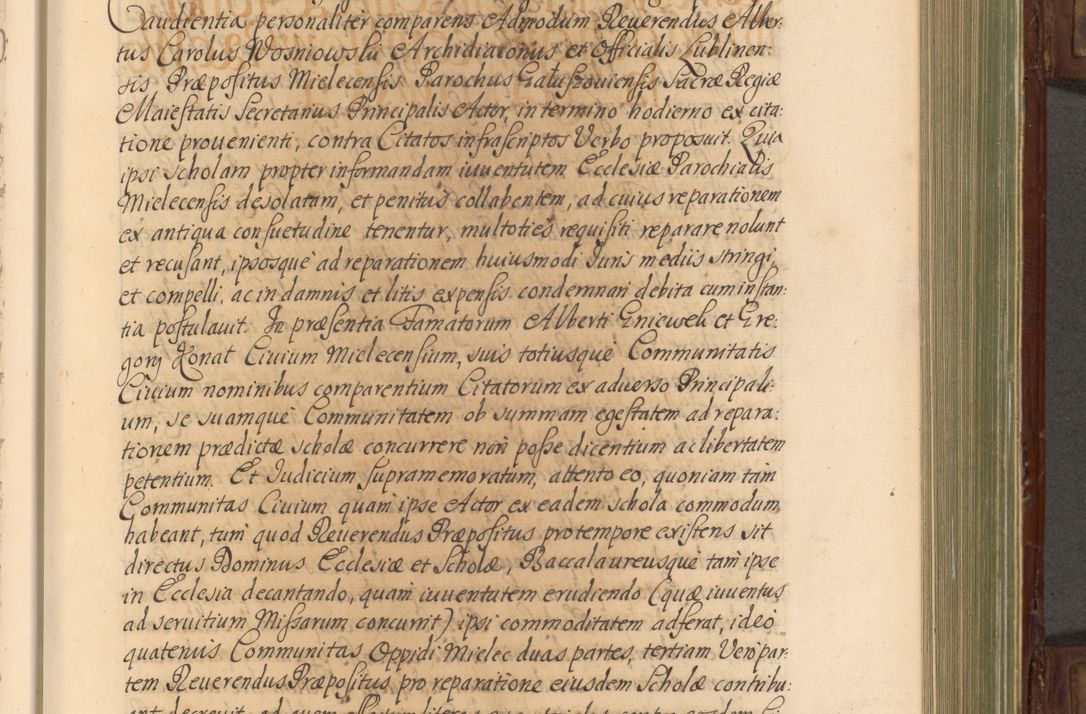 audientia personaliter comparens Admodum Reuerendus Alber:
tus Carolus Wosniowski Archidiaconus et Officialis Lublinen:
sis, Præpositus Mielecensis Parochus Galuszouiensis Sacræ Regiæ
Maiestatis Secretarius Principalis Actor, in termino hodierno ex cita:
tione prouenienti, contra Citatos infrascriptos Verbo proposuit. Quia
ipsi scholam propter informandam iuuentutem Ecclesiæ Parochialis
Mielecensis desolatam, et penitus collabentem, ad cuius reparationem
ex antiqua consuetudine tenentur, multoties requisiti reparare nolunt
et recusant, ipsosque ad reparationem huiusmodi Iuris mediis stringi,
et compelli, ac in damnis et litis expensis condemnari debita cum instan:
tia postulauit. In præsentia Famatorum Alberti Gniewek et Gre:
gorij Konat Ciuium Mielecensium, suis totiusque Communitatis
Ciuium nominibus comparentium Citatorum ex aduerso Principali:
um, se suamque Communitatem ob summam egestatem ad repara:
tionem prædictæ scholæ concurrere non posse dicentium ac libertatem
petentium. Et Iudicium supramemoratum, attento eo, quoniam tam
Communitas Ciuium quam ipse Actor ex eadem schola commodum
habeant, tum quod Reuerendus Præpositus pro tempore existens sit
directus Dominus Ecclesiæ et Scholæ, Baccalaureusque tam ipse
in Ecclesia decantando, quam iuuentutem erudiendo (quæ iuuentus
ad seruitium Missarum concurrit) ipsi commoditatem adferat, ideo
quatenus Communitas Oppidi Mielec duas partes, tertiam Vero par:
tem Reuerendus Præpositus pro reparatione eiusdem Scholæ contribu: